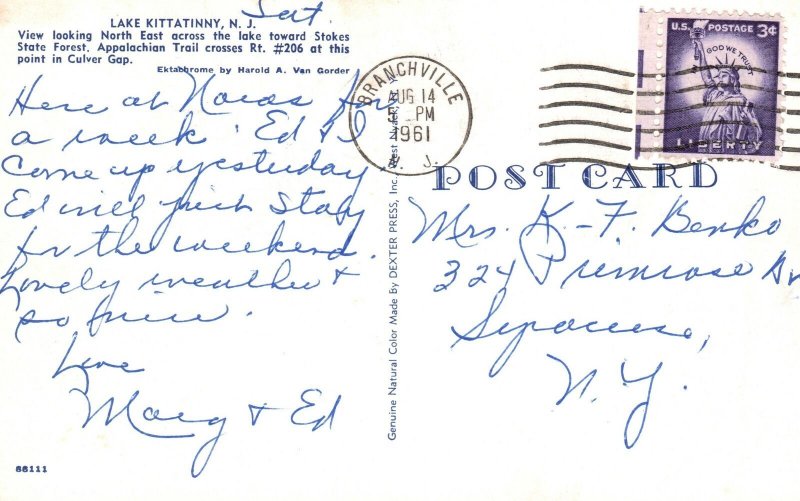 LAKE KITTATINNY, N. J.
View looking North East across the lake toward Stokes
State Forest. Appalachian Trail crosses Rt. #206 at this
point in Culver Gap.
Ektachrome by Harold A. Van Gorder
Sat.
Here at Noras for
a week. Ed & I
come up yesterday
Ed will just stay
for the weekend.
Lovely weather &
so nice.
Love
Marg & Ed
66111
Genuine Natural Color Made by DEXTER PRESS, Inc.
BRANCHVILLE
AUG 14
PM
1961
N. J.
U.S. POSTAGE 3¢
IN GOD WE TRUST
LIBERTY
POST CARD
Mrs. K. F. Benko
324 Primrose Dr
Syracuse,
N. Y.